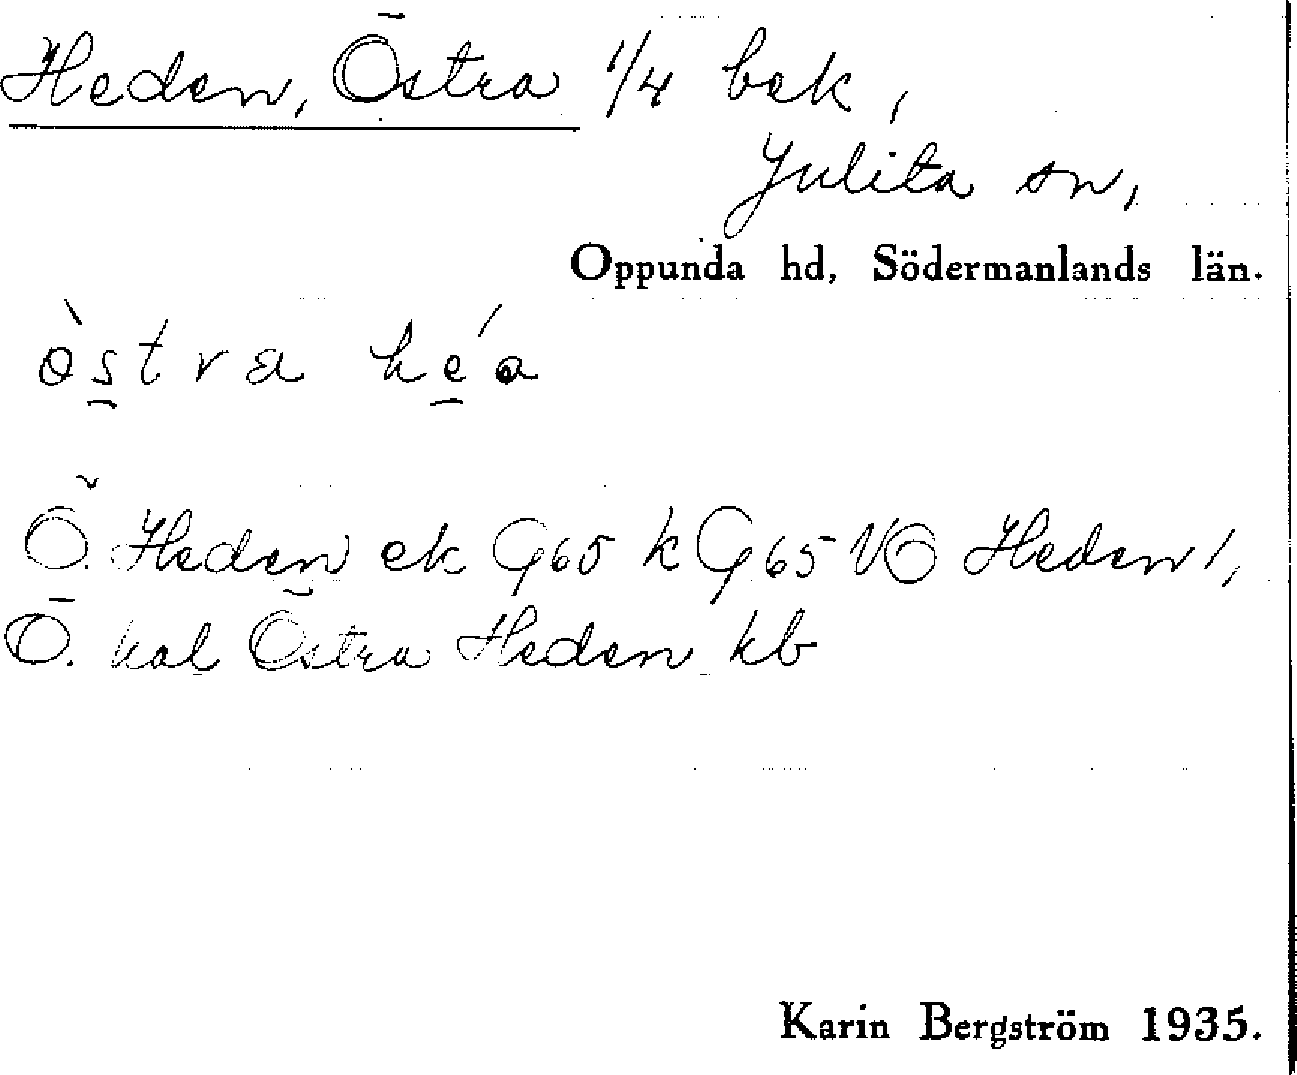 Heden, Östra 1/4 bek,
Julita sn,
Oppunda hd, Södermanlands län.
östra héa
Ö. Heden ek G65 k G65 VÖ Heden 1,
Ö. hal Östra Heden kb
Karin Bergström 1935.